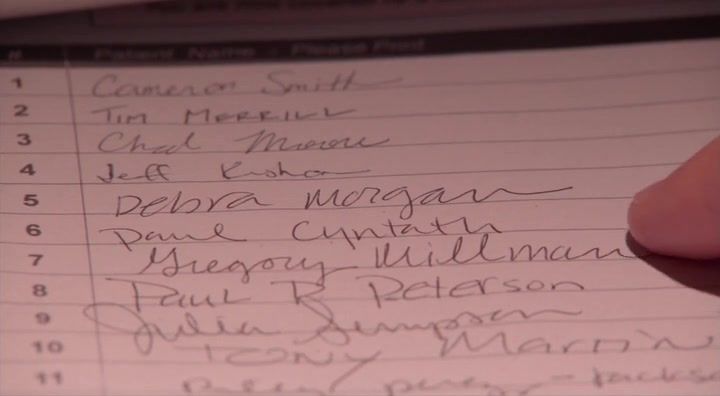 # Patient Name - Please Print
1 Cameron Smith
2 TIM MERRILL
3 Chad Moore
4 Jeff
5 DEBRA MORGAN
6 Paul
7 Gregory Millman
8 PAUL R PETERSON
9 Julia Simpson
10 TONY MARTIN
11